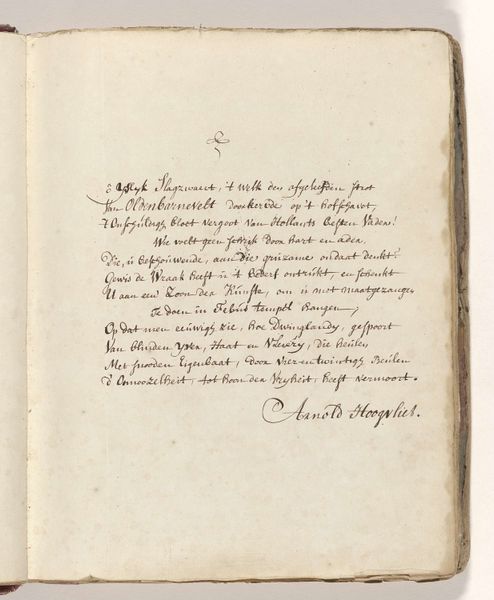 ô Yslyk Slagzwaert, 't welk den afgeleefden strot
Van Oldenbarnevelt doorkerfde op 't hofschavot,
't Onschuldigh bloet vergoot van Hollants besten Vader!
Wie voelt geen schrik door hart en ader
Die, u beschouwende, aan die gruzame ondaat denkt?
Gewis de Wraak heeft u 't bederf ontrukt, en schenkt
U aan een Zoon der Kunste, om u met maatgezangen
Te doen in Febus tempel hangen,
Op dat men eeuwigh zie, hoe Dwinglandy, gespoort
Van blinden yver, Haat en Slaverny, die heulen
Met snooden Eigenbaat, door vier-en-twintigh Beulen
D'Onnoozelheit, tot hoon der Vryheit, heeft vermoort.
Arnold Hoogvliet.